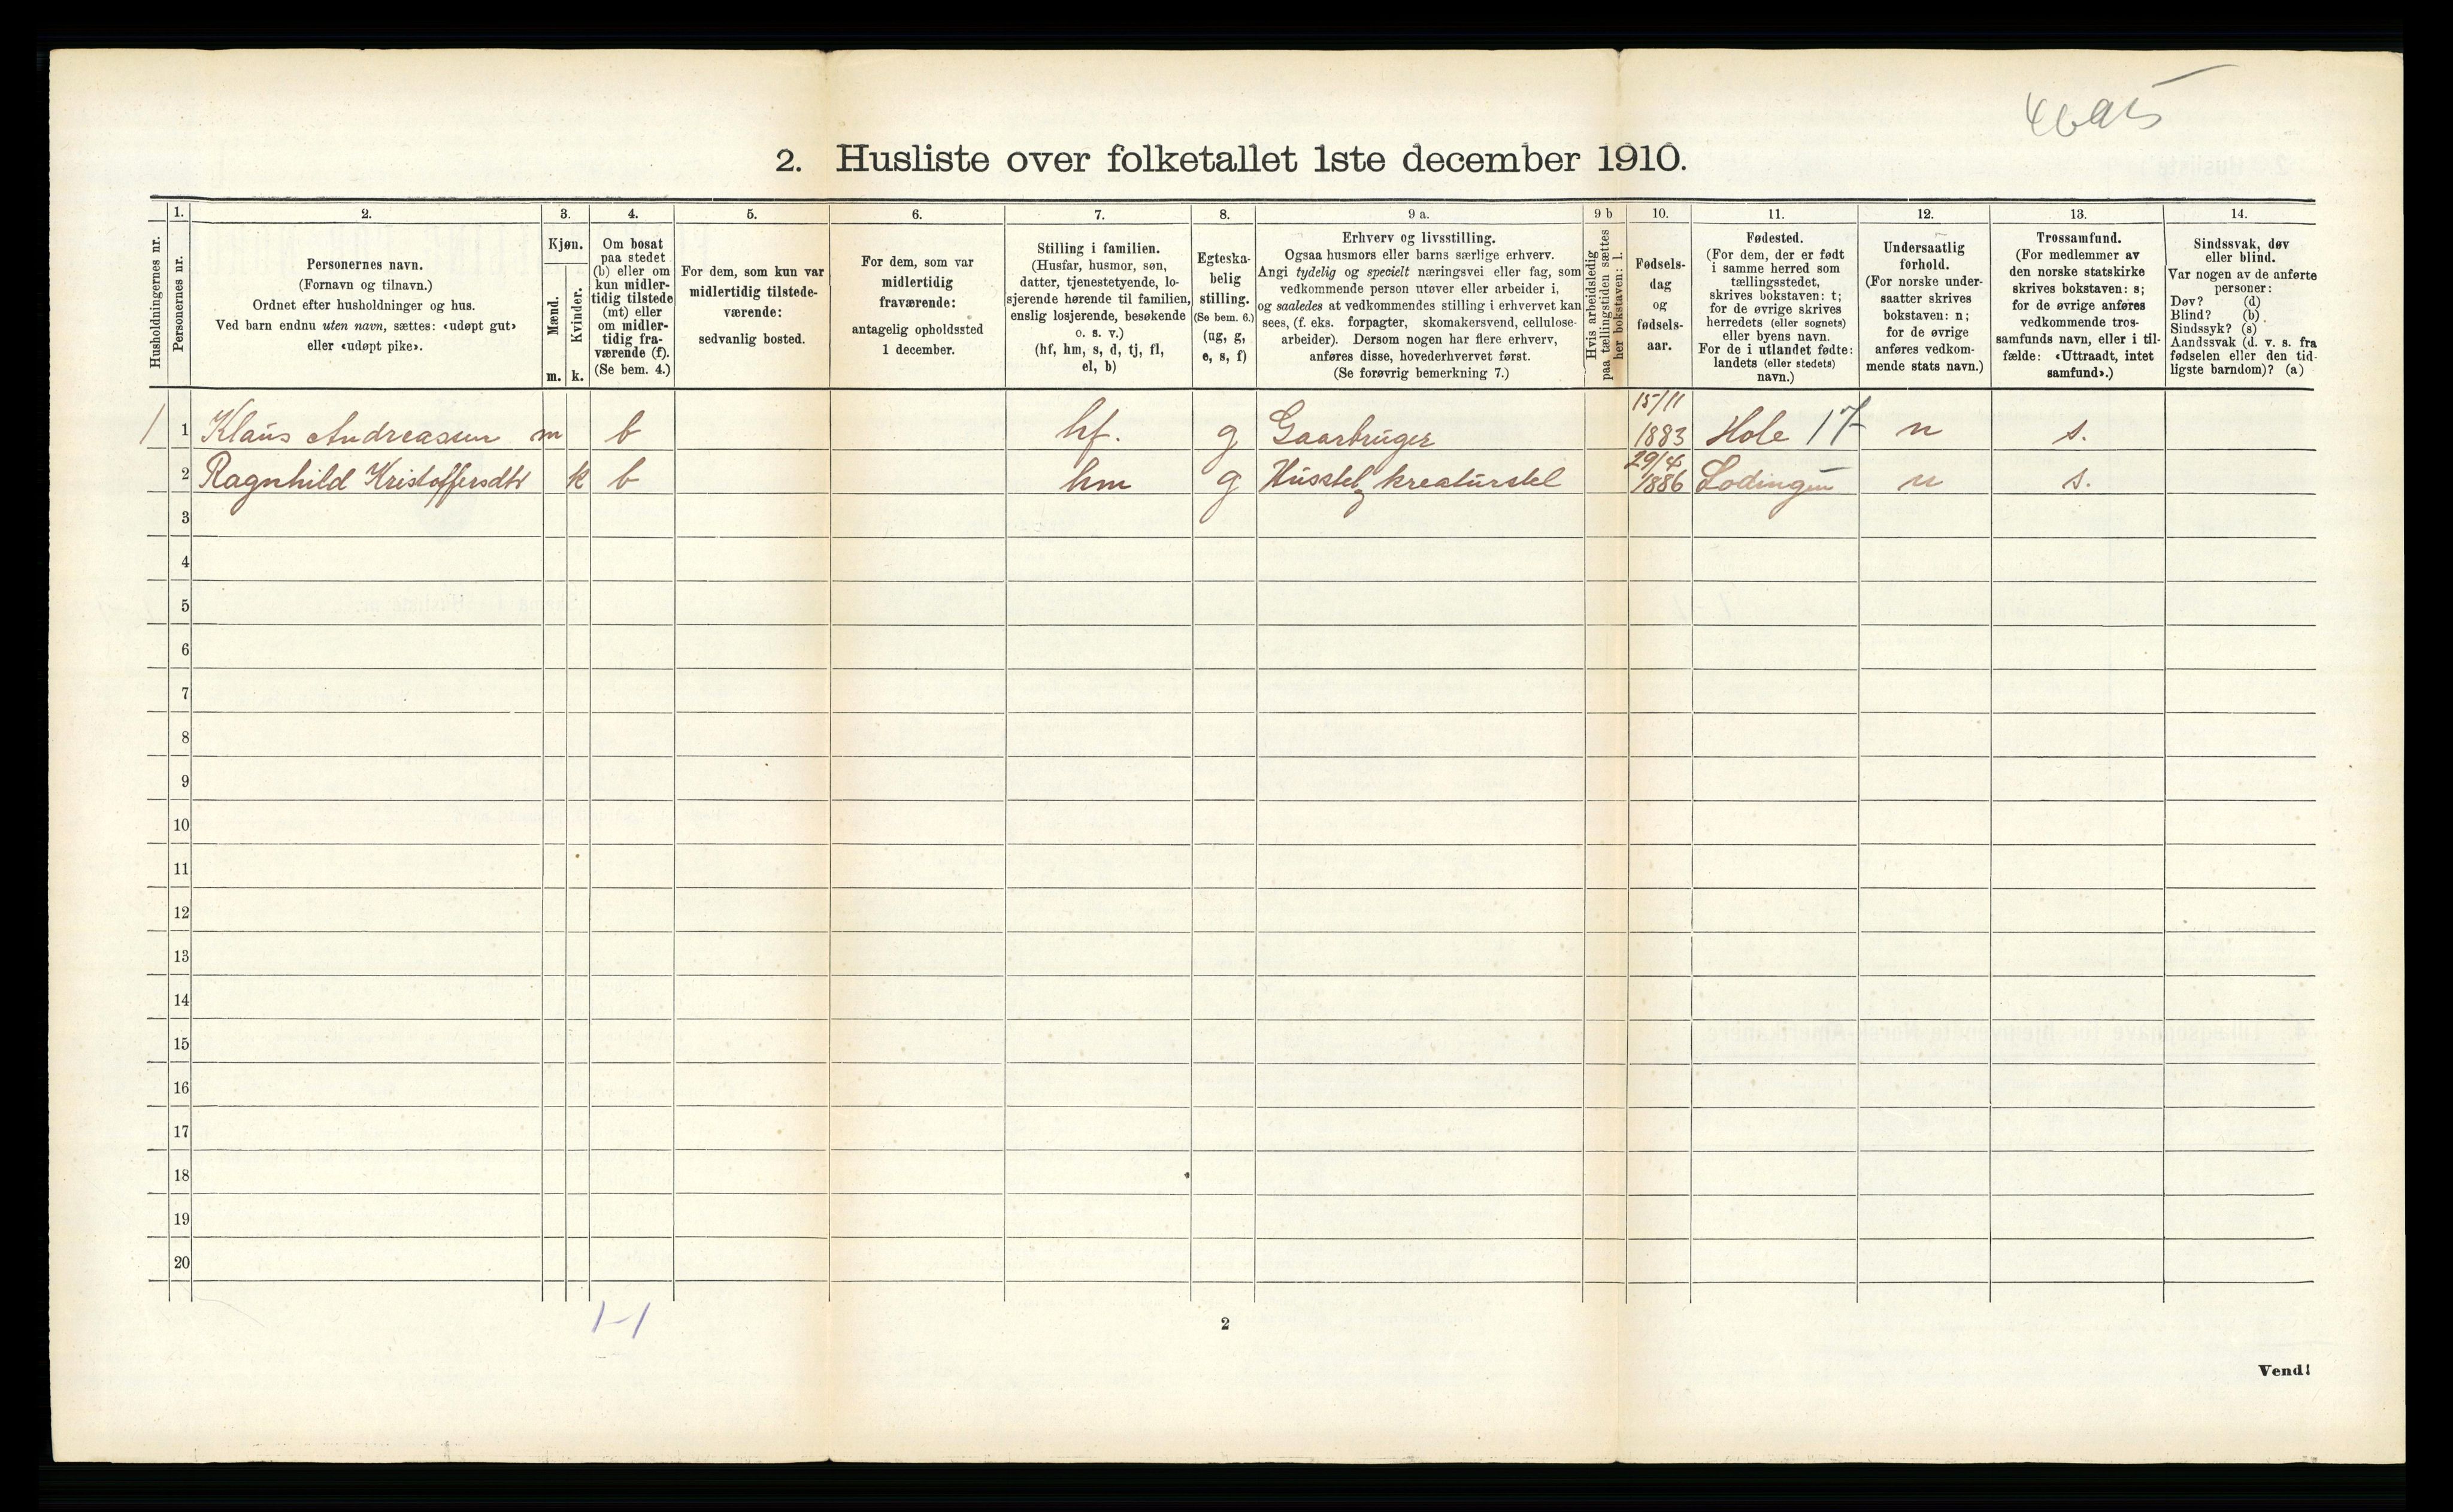 2. Husliste over folketallet 1ste december 1910.
Husholdningernes nr.
1.
Personernes nr.
2.
Personernes navn.
(Fornavn og tilnavn.)
Ordnet efter husholdninger og hus.
Ved barn endnu uten navn, sættes: «udøpt gut»
eller «udøpt pike».
3.
Kjøn.
Mænd.
Kvinder.
m. k.
4.
Om bosat
paa stedet
(b) eller om
kun midler-
tidig tilstede
(mt) eller
om midler-
tidig fra-
værende (f).
(Se bem. 4.)
5.
For dem, som kun var
midlertidig tilstede-
værende:
sedvanlig bosted.
6.
For dem, som var
midlertidig
fraværende:
antagelig opholdssted
1 december.
7.
Stilling i familien.
(Husfar, husmor, søn,
datter, tjenestetyende, lo-
sjerende hørende til familien,
enslig losjerende, besøkende
o. s. v.)
(hf, hm, s, d, tj, fl,
el, b)
8.
Egteska-
belig
stilling.
(Se bem. 6.)
(ug, g,
e, s, f)
9 a.
Erhverv og livsstilling.
Ogsaa husmors eller barns særlige erhverv.
Angi tydelig og specielt næringsvei eller fag, som
vedkommende person utøver eller arbeider i,
og saaledes at vedkommendes stilling i erhvervet kan
sees, (f. eks. forpagter, skomakersvend, cellulose-
arbeider). Dersom nogen har flere erhverv,
anføres disse, hovederhvervet først.
(Se forøvrig bemerkning 7.)
9 b
Hvis arbeidsledig
paa tællingstiden sættes
her bokstaven: l.
10.
Fødsels-
dag
og
fødsels-
aar.
11.
Fødested.
(For dem, der er født
i samme herred som
tællingsstedet,
skrives bokstaven: t;
for de øvrige skrives
herredets (eller sognets)
eller byens navn.
For de i utlandet fødte:
landets (eller stedets)
navn.)
12.
Undersaatlig
forhold.
(For norske under-
saatter skrives
bokstaven: n;
for de øvrige
anføres vedkom-
mende stats navn.)
13.
Trossamfund.
(For medlemmer av
den norske statskirke
skrives bokstaven: s;
for de øvrige anføres
vedkommende tros-
samfunds navn, eller i til-
fælde: «Uttraadt, intet
samfund».)
14.
Sindssvak, døv
eller blind.
Var nogen av de anførte
personer:
Døv? (d)
Blind? (b)
Sindssyk? (s)
Aandssvak (d. v. s. fra
fødselen eller den tid-
ligste barndom)? (a)
1 1 Klaus Andreasen m b hf. g Gaarbruger 15/11 1883 Hole n s.
2 Ragnhild Kristoffersdtr k b hm g Husstel, kreaturstel 29/4 1886 Lodingen n s.
3
4
5
6
7
8
9
10
11
12
13
14
15
16
17
18
19
20
1-1
2
Vend!